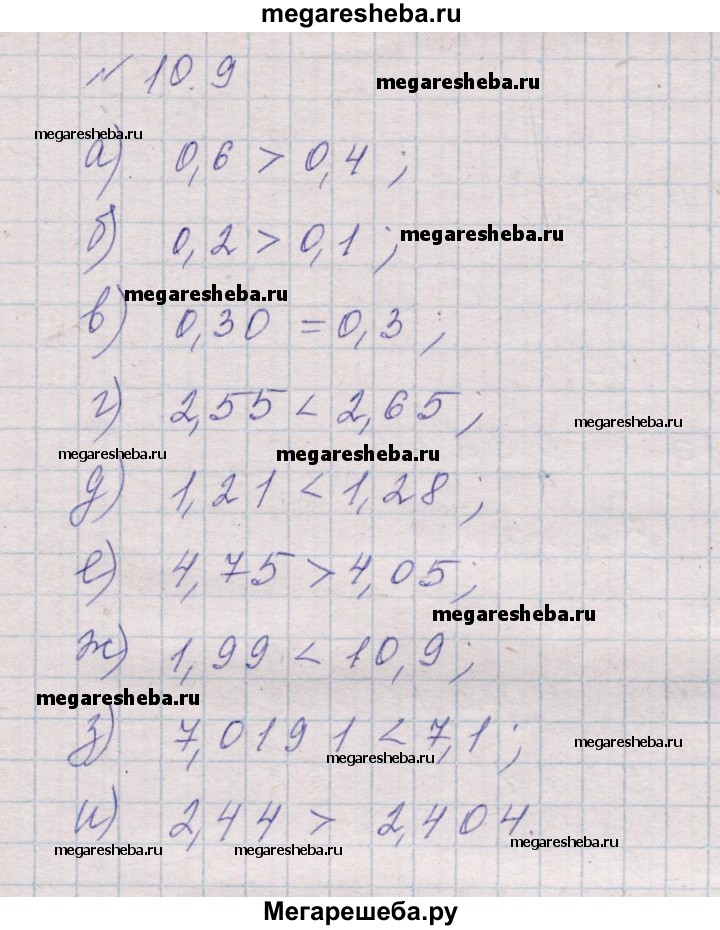 megaresheba.ru
№ 10.9
megaresheba.ru
megaresheba.ru
а) 0,6 > 0,4;
б) 0,2 > 0,1;
megaresheba.ru
megaresheba.ru
в) 0,30 = 0,3;
г) 2,55 < 2,65;
megaresheba.ru
megaresheba.ru
megaresheba.ru
д) 1,21 < 1,28;
е) 4,75 > 4,05;
megaresheba.ru
ж) 1,99 < 10,9;
megaresheba.ru
з) 7,0191 < 7,1;
megaresheba.ru
megaresheba.ru
и) 2,44 > 2,404.
megaresheba.ru
megaresheba.ru
megaresheba.ru
Мегарешеба.ру